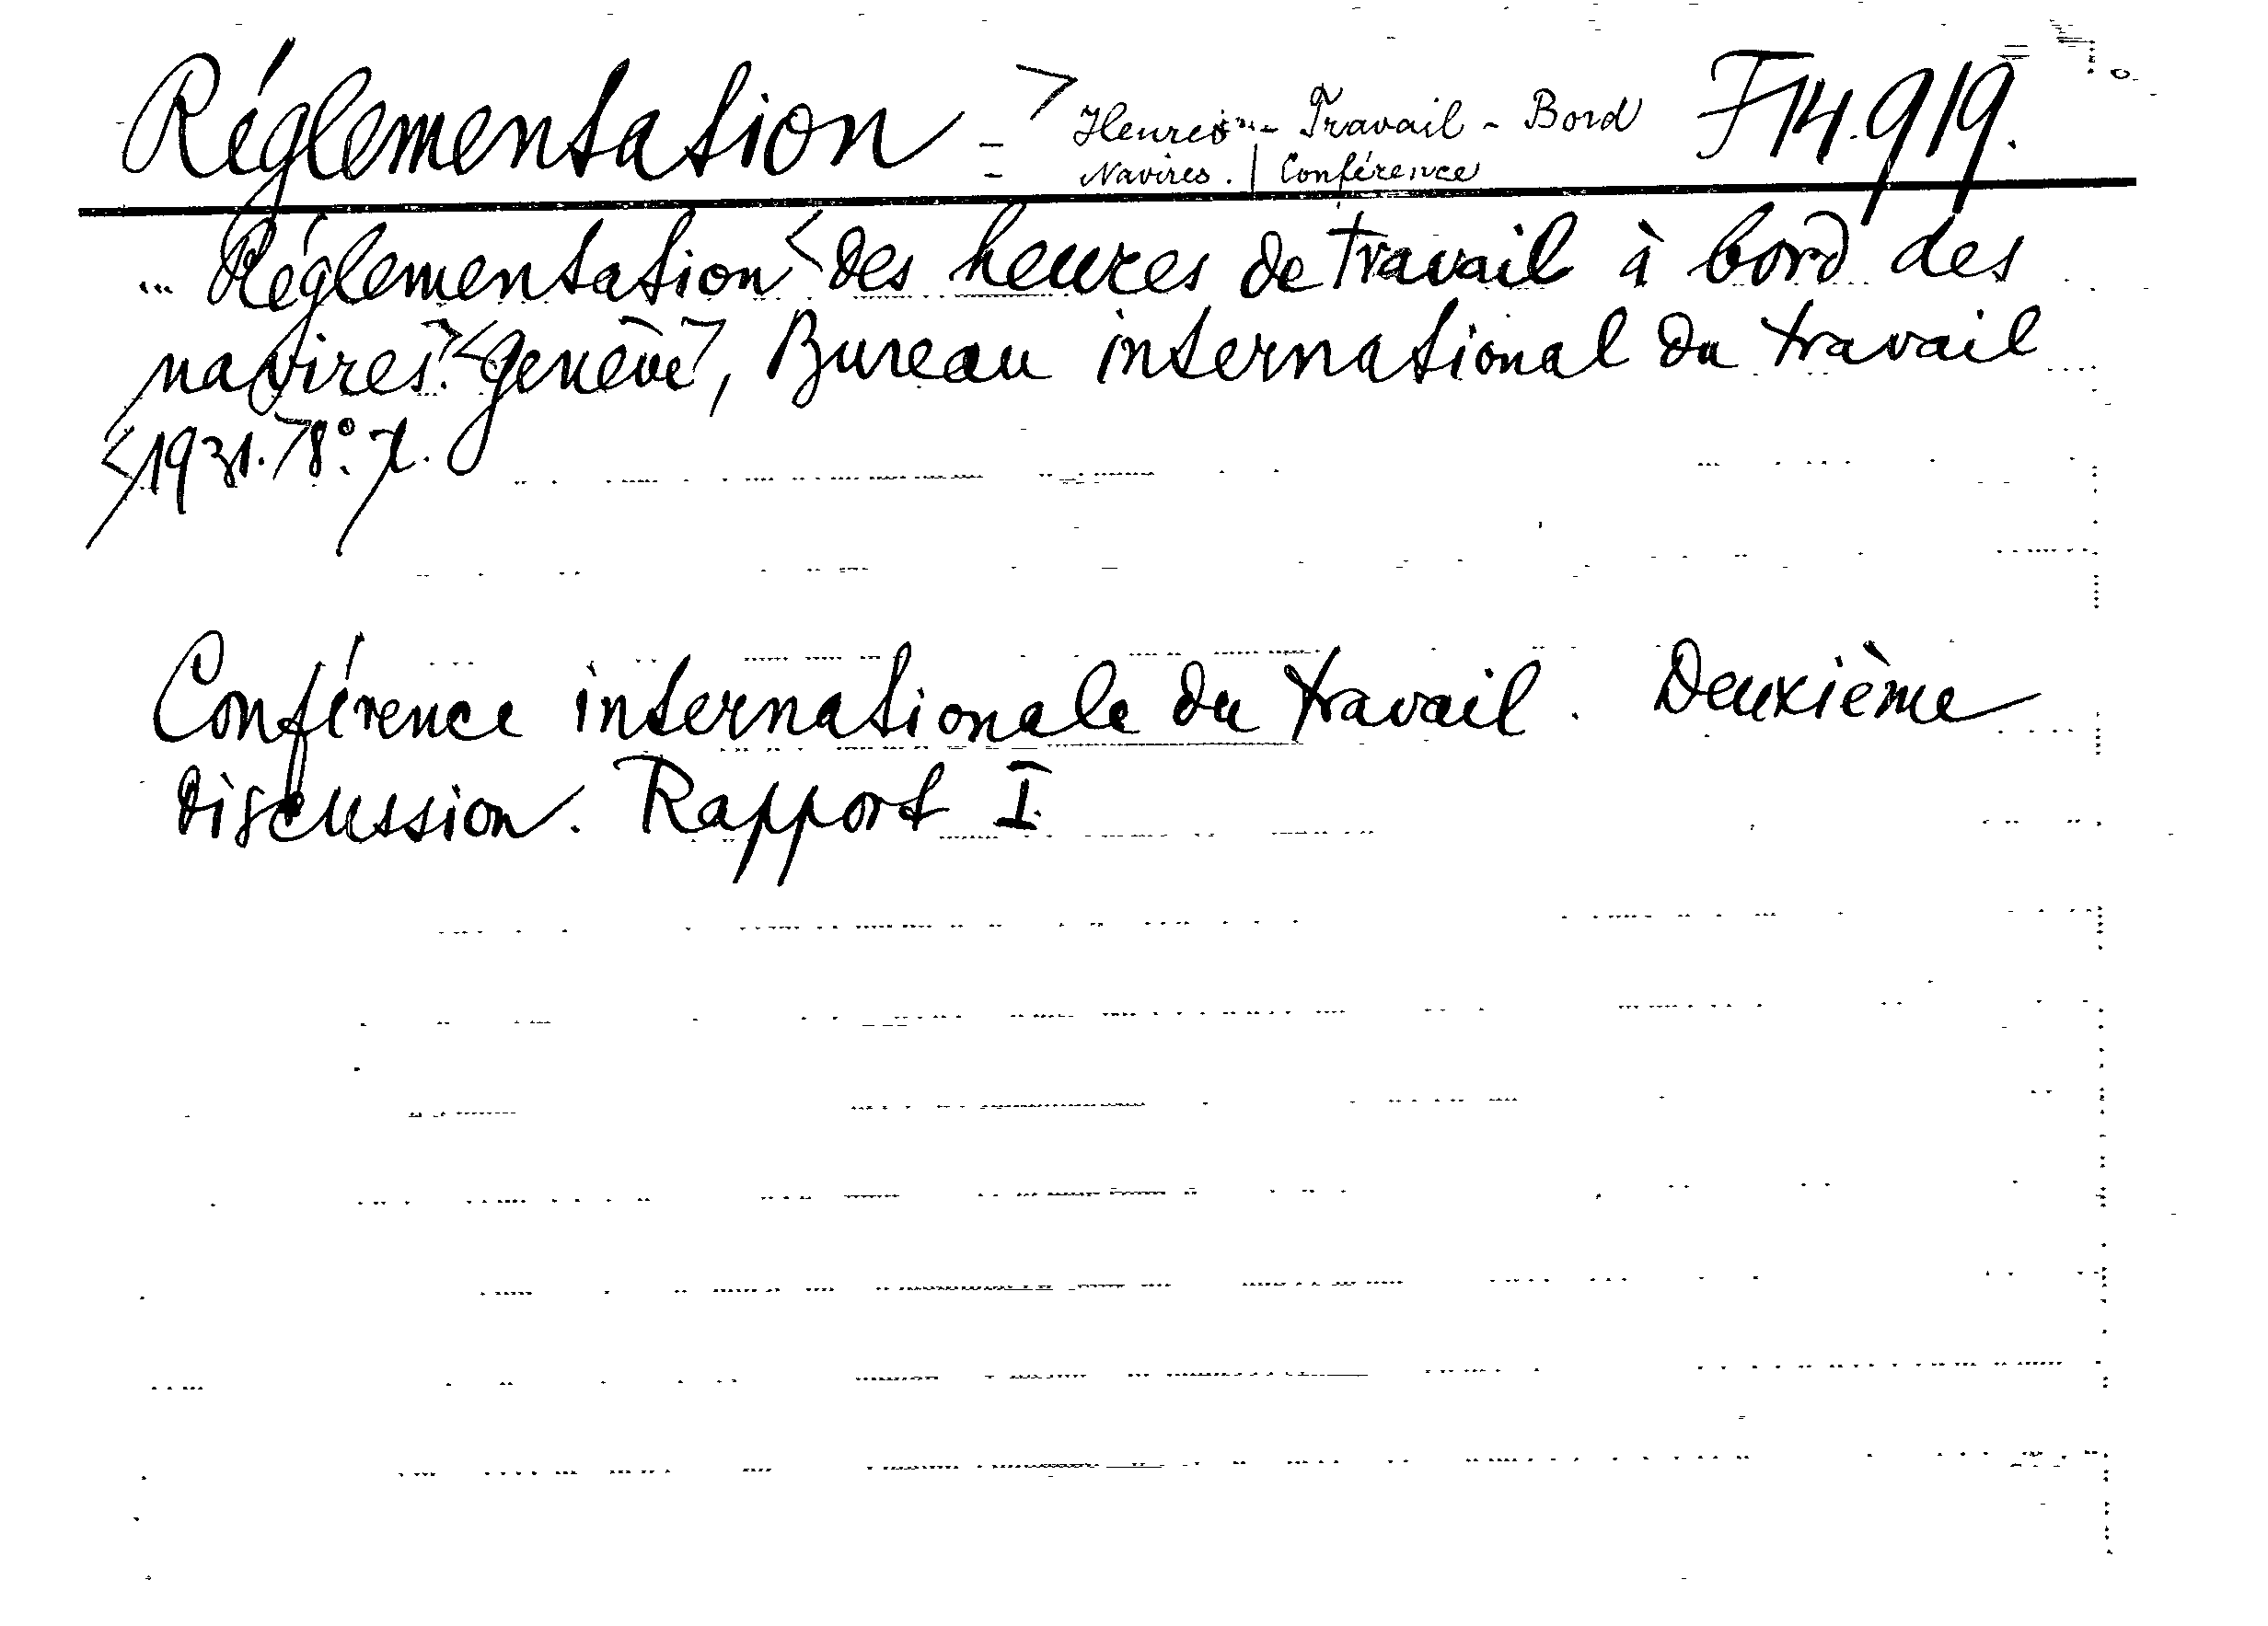 Réglementation - Heures - Travail - Bord F14.919.
Navires. | Conférence
... Réglementation des heures de travail à bord des
navires. Genève, Bureau international du travail
1931. 8°.
Conférence internationale du travail. Deuxième
discussion. Rapport I.